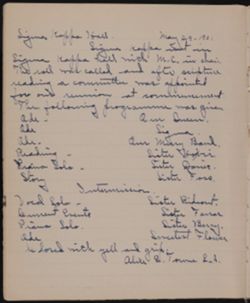 Sigma Kappa Hall. May 29, 1901
Sigma Kappa met in
Sigma Kappa Hall with M.C. in chair
The roll was called and after scripture
reading a committee was appointed
for reunion at commencement
The following programme was given
Ode - Our Queen
Ode Sigma
Ode. Our Mary Band.
Reading - Sister
Piano Solo - Sister Davis.
Story Sister Foss.
Intermission.
Vocal Solo - Sister Rideout.
Current Events Sister Farrar
Piano Solo. Sister Berry.
Ode Sweetest Flower
Closed with yell and grip.
Alice B. Towne